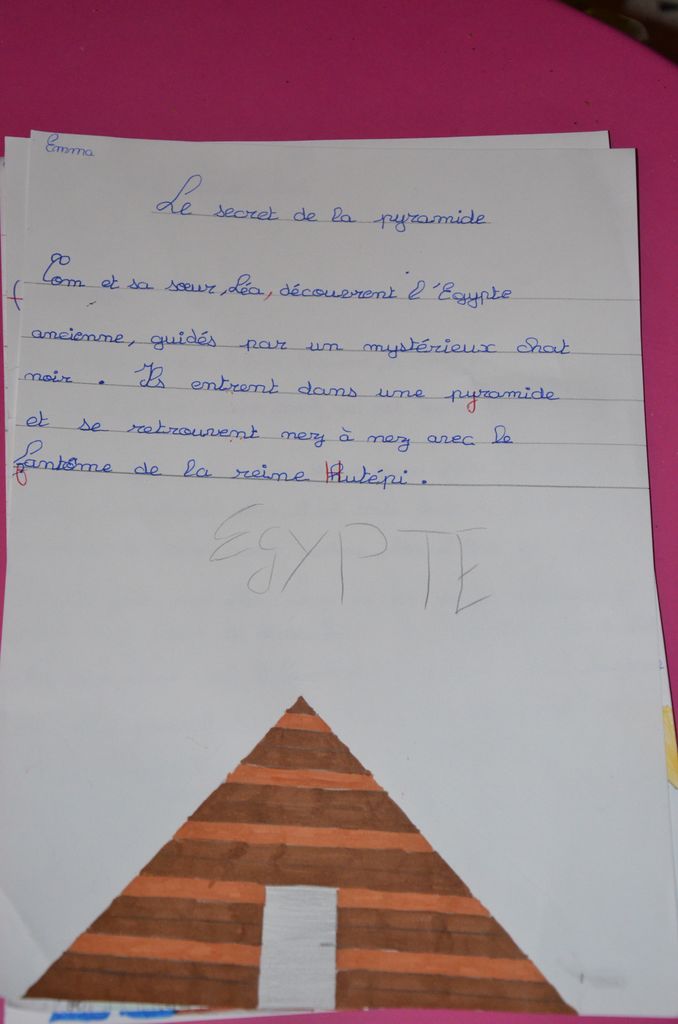 Emma
Le secret de la pyramide
Tom et sa sœur, Léa, découvrent l'Egypte
ancienne, guidés par un mystérieux chat
noir. Ils entrent dans une pyramide
et se retrouvent nez à nez avec le
fantôme de la reine Hutépi.
EGYPTE